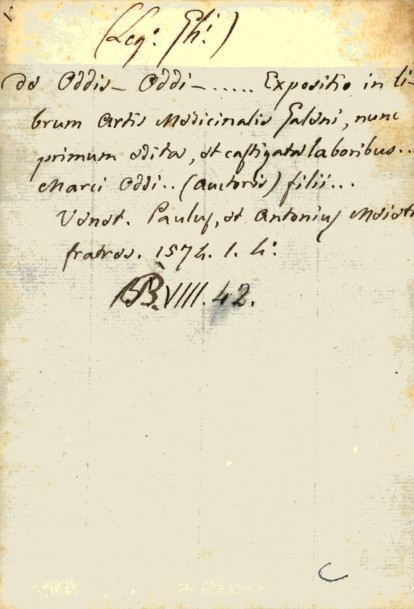 (Leg: Gh:)
De Oddis – Oddi – ..... Expositio in li-
brum Artis Medicinalis Galeni, nunc
primum edita, et castigata laboribus..
Marci Oddi.. (Auctoris) filii...
Venet. Paulus, et Antonius Meieti
fratres. 1574. 1. 4:
BB.VIII.42.